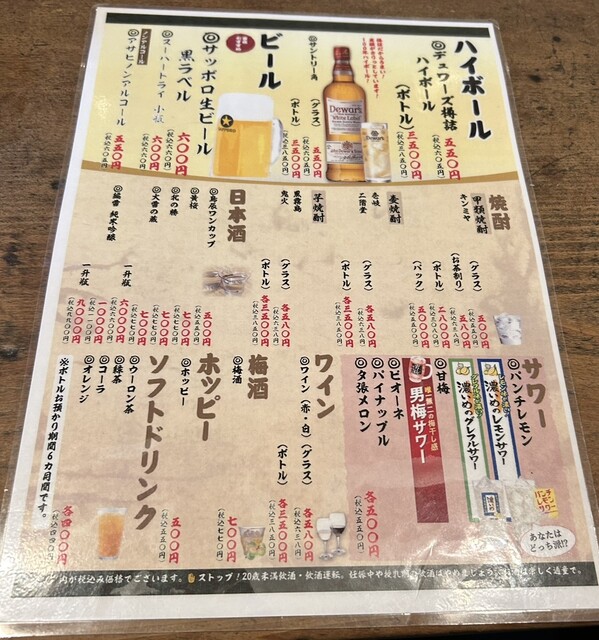 ハイボール
◎デュワーズ梅詰
ハイボール
(ボトル)
五五〇円
(税込六〇五円)
三五〇〇円
(税込三八五〇円)
Dewar's
White Label
◎サントリー角
(グラス)
(ボトル)
五五〇円
(税込六〇五円)
三五〇〇円
(税込三八五〇円)
ビール
◎サッポロ生ビール
黒ラベル
六〇〇円
(税込六六〇円)
◎スーパードライ 小瓶
六〇〇円
(税込六六〇円)
ノンアルコール
◎アサヒノンアルコール
五五〇円
(税込六〇五円)
焼酎
甲類焼酎
キンミヤ
(グラス)
(お茶割り)
(ボトル)
(パック)
五〇〇円
(税込五五〇円)
麦焼酎
壱岐
二階堂
(グラス)
(ボトル)
各五八〇円
(税込六三八円)
各三五〇〇円
(税込三八五〇円)
芋焼酎
黒霧島
鬼火
(グラス)
(ボトル)
各五八〇円
(税込六三八円)
各三五〇〇円
(税込三八五〇円)
日本酒
◎島辰ワンカップ
五〇〇円
(税込五五〇円)
◎黄桜
七〇〇円
(税込七七〇円)
◎北の勝
七〇〇円
(税込七七〇円)
◎大雪の蔵
一升瓶
七〇〇円
(税込七七〇円)
六〇〇〇円
(税込六六〇〇円)
純米吟醸
一升瓶
一〇〇〇円
(税込一一〇〇円)
九〇〇〇円
(税込九九〇〇円)
サワー
◎パンチレモン
濃いめのレモンサワー
濃いめのグレフルサワー
◎甘梅
唯一無二の梅干し感
男梅サワー
◎ピオーネ
◎パイナップル
◎夕張メロン
各五〇〇円
(税込五五〇円)
パンチレモンサワー
あなたは
どっち派!?
ワイン
◎ワイン(赤・白)(グラス)
(ボトル)
各五八〇円
(税込六三八円)
各三五〇〇円
(税込三八五〇円)
梅酒
◎梅酒
七〇〇円
(税込七七〇円)
ホッピー
◎ホッピー
五〇〇円
(税込五五〇円)
ソフトドリンク
◎ウーロン茶
◎緑茶
◎コーラ
◎オレンジ
各四〇〇円
(税込四四〇円)
※ボトルお預かり期間6カ月間です。
内が税込み価格でございます。 ストップ!20歳未満飲酒・飲酒運転。妊娠中や授乳期の飲酒はやめましょう。お酒は楽しく適量で。